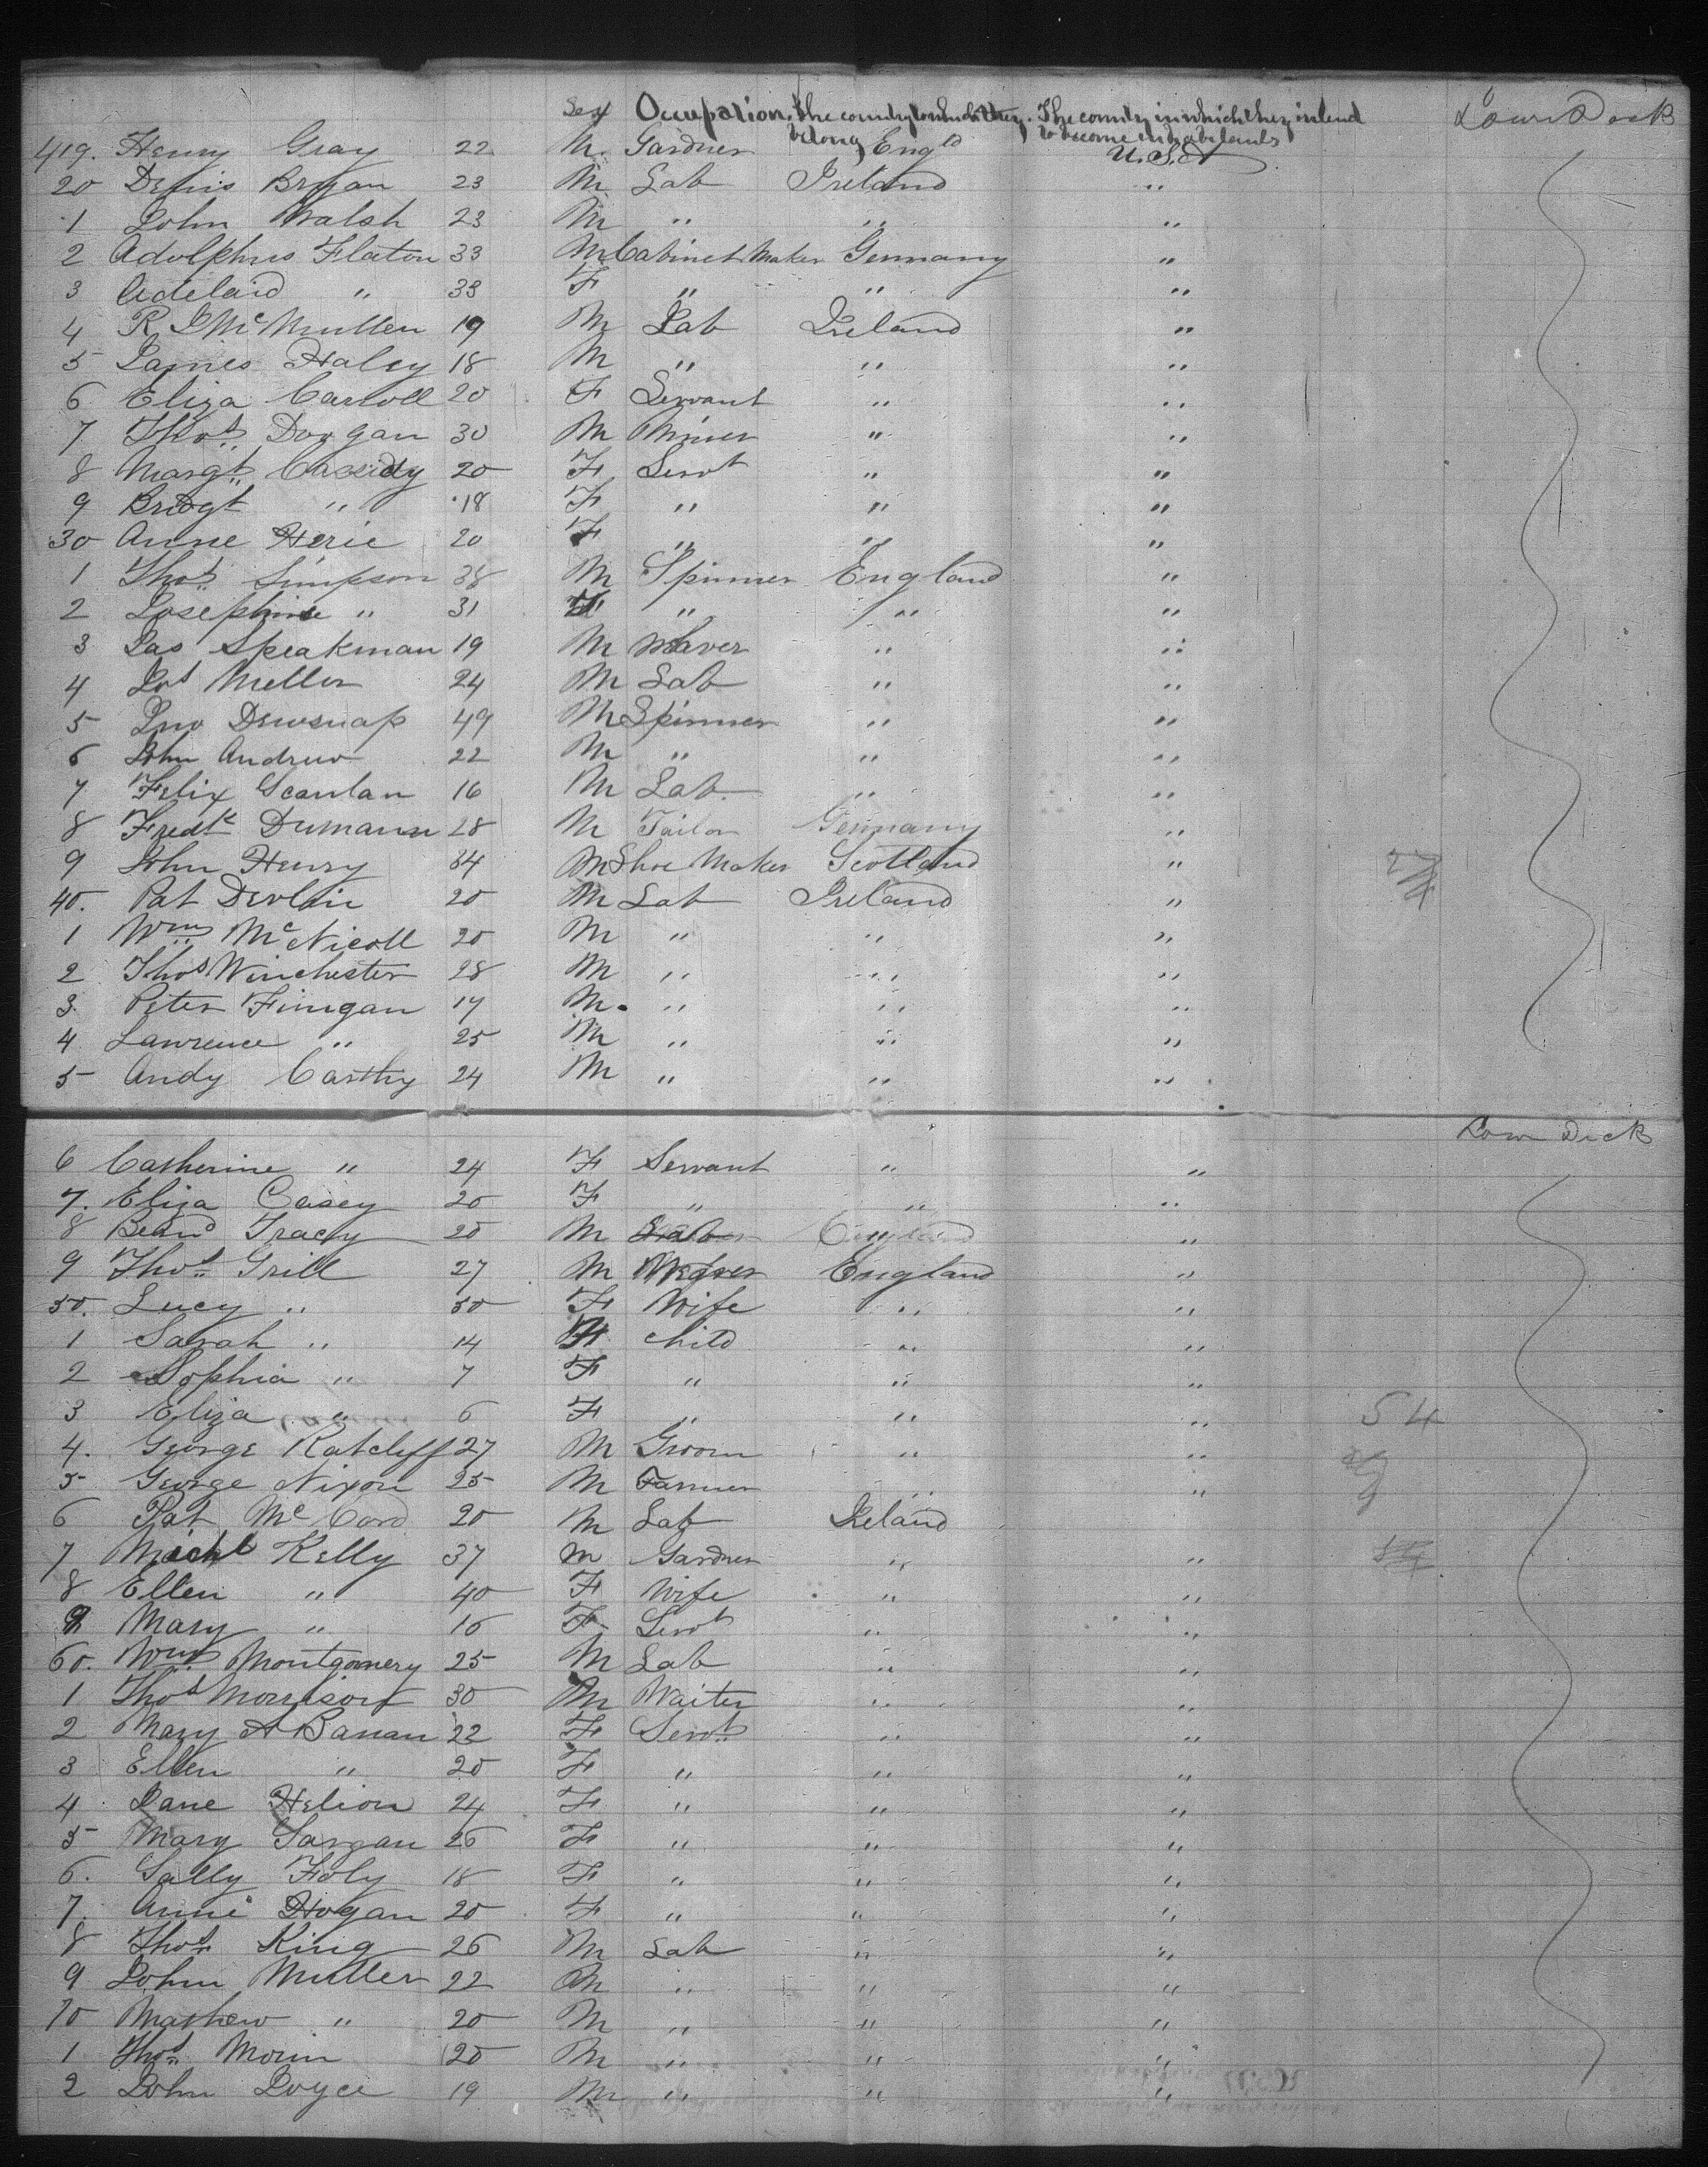 Sex Occupation. The country to which they belong. The country in which they intend to become inhabitants Lower Deck
419. Henry Gray 22 M. Gardner Engld U.S.A
20 Denis Bryan 23 M Lab Ireland "
1 John Walsh 23 M " " "
2 Adolphus Flaton 33 M Cabinet Maker Germany "
3 Adelaid " 33 F " " "
4 R J McMullen 19 M Lab Ireland "
5 James Haley 18 M " " "
6 Eliza Carroll 20 F Servant " "
7 Thos Dougan 30 M Miner " "
8 Margt Cassidy 20 F Servt " "
9 Bridgt " 18 F " " "
30 Anne Herie 20 F " " "
1 Thos Simpson 38 M Spinner England "
2 Josephine " 31 F " " "
3 Jas Speakman 19 M Waver " "
4 Jos Meller 24 M Lab " "
5 Jno Dewsnap 49 M Spinner " "
6 John Andrew 22 M " " "
7 Felix Scanlan 16 M Lab " "
8 Fredk Dumann 28 M Tailor Germany "
9 John Henry 34 M Shoe Maker Scotland "
40. Pat Devlin 20 M Lab Ireland "
1 Wm McNicoll 20 M " " "
2 Thos Winchester 28 M " " "
3. Peter Finigan 17 M. " " "
4 Lawrence " 25 M " " "
5 Andy Carthy 24 M " " "
Lower Deck
6 Catherine " 24 F Servant " "
7. Eliza Casey 20 F " " "
8 Bernd Tracy 20 M Labor England "
9 Thos Grill 27 M Weaver England "
50. Lucy " 30 F Wife " "
1 Sarah " 14 F child " "
2 Sophia " 7 F " " "
3 Eliza " 6 F " " " 54
4. George Ratcliff 27 M Groom " "
5 George Nixon 25 M Farmer " "
6 Pat McCord 20 M Lab Ireland
7 Michl Kelly 37 M Gardner " "
8 Ellen " 40 F Wife " "
9 Mary " 16 F Servt " "
60. Wm Montgomery 25 M Lab " "
1 Thos Morrison 30 M Waiter " "
2 Mary A Banan 22 F Servt " "
3 Ellen " 20 F " " "
4 Jane Helion 24 F " " "
5 Mary Gargan 26 F " " "
6. Sally Foly 18 F " " "
7. Anne Hogan 20 F " " "
8 Thos King 26 M Lab " "
9 John Muller 22 M " " "
70 Mathew " 20 M " " "
1 Thos Morin 20 M " " "
2 John Joyce 19 M " " "